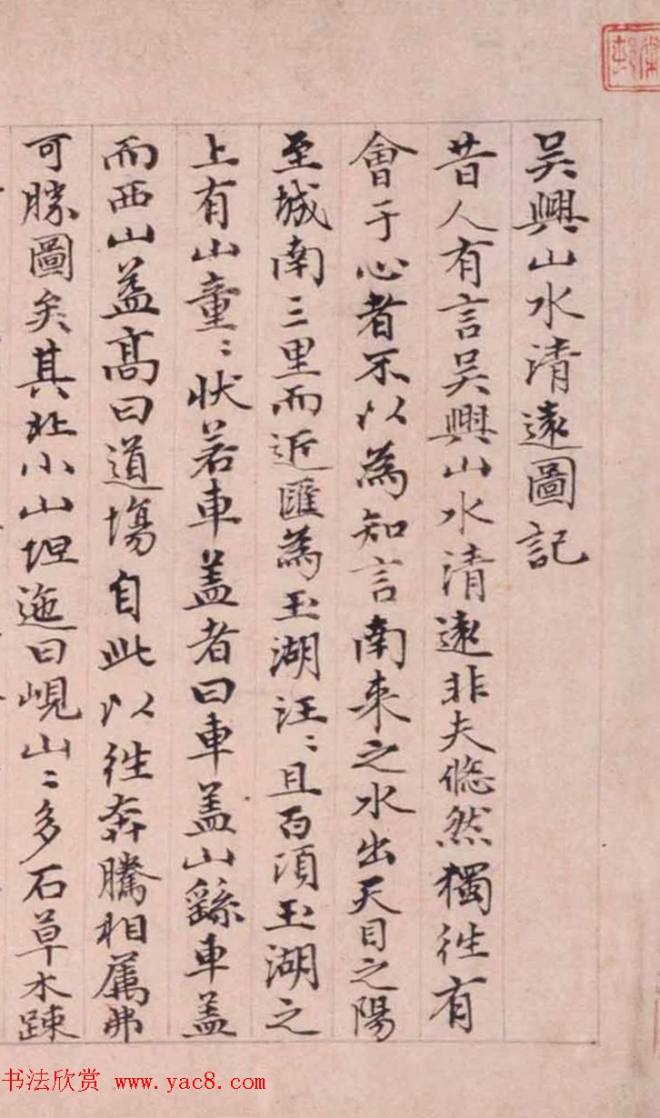 吳興山水清遠圖記
昔人有言吳興山水清遠非夫悠然獨往有
會于心者不以為知言南來之水出天目之陽
至城南三里而近匯為玉湖汪〻且百頃玉湖之
上有山童〻狀若車蓋者曰車蓋山繇車蓋
而西山益高曰道場自此以往奔騰相屬弗
可勝圖矣其北小山坦迤曰峴山〻多石草木疎
书法欣赏 www.yac8.com